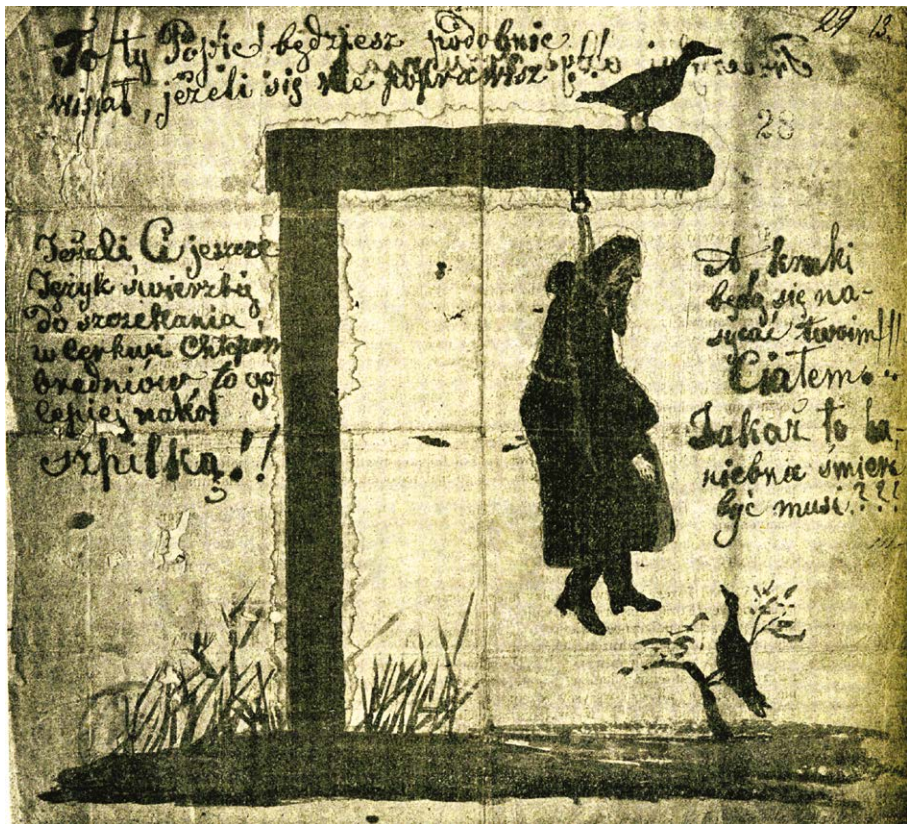 To ty Popie! będziesz podobnie
wisiał, jeżeli się nie poprawisz
29 13.
28
Jeżeli Ci jeszcze
Język świerzbią
do szczekania
w Cerkwi Chłopom
bredniów to go
lepiej nakol
szpilką!!
A kruki
będą się na-
sycać twoim!!!
Ciałem..
Jakaż to ha-
niebna śmierć
być musi???